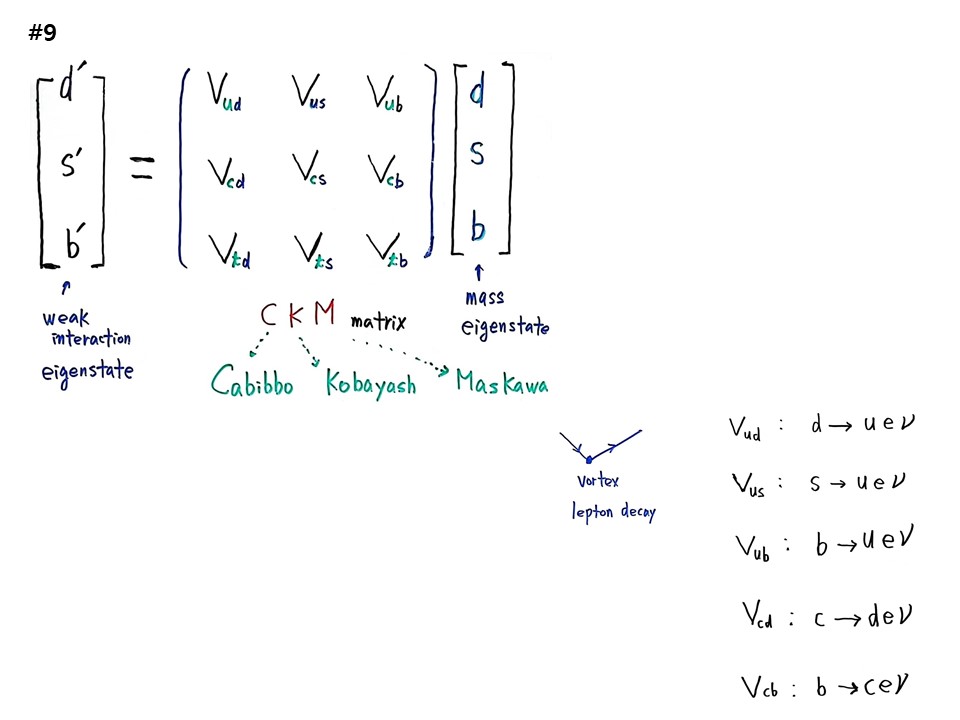 #9
d′ = V_ud V_us V_ub d
s′ V_cd V_cs V_cb s
b′ V_td V_ts V_tb b
↑ weak interaction eigenstate
CKM matrix
↑ mass eigenstate
Cabibbo Kobayash Maskawa
vortex
lepton decay
V_ud : d → u e ν
V_us : s → u e ν
V_ub : b → u e ν
V_cd : c → d e ν
V_cb : b → c e ν